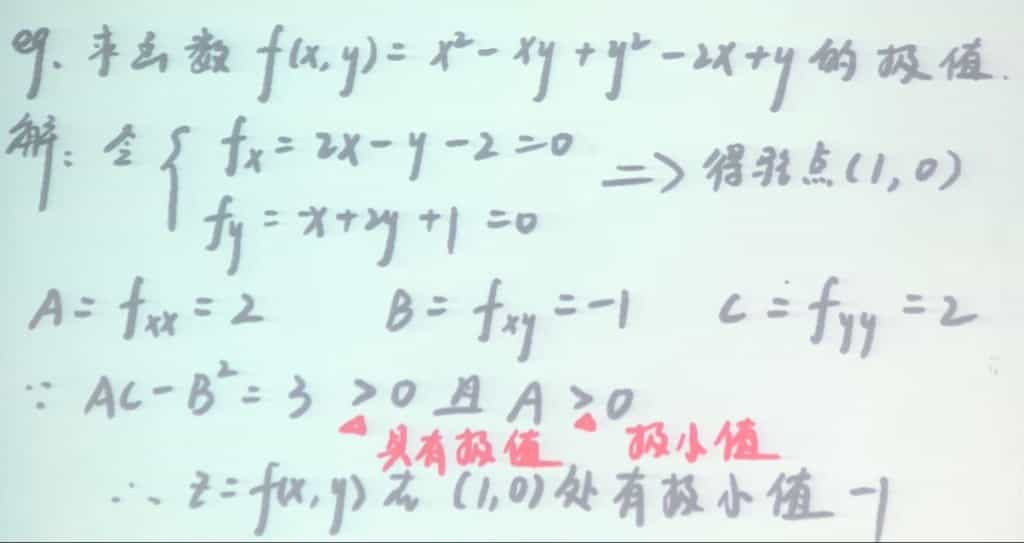 eg. 求函数 f(x,y)= x²-xy+y²-2x+y 的极值.
解: 令 { fx = 2x-y-2=0
fy = -x+2y+1=0 => 得驻点(1,0)
A = fxx = 2 B = fxy = -1 C = fyy = 2
∵ AC-B² = 3 >0 且 A >0
具有极值 极小值
∴ z=f(x,y) 在 (1,0) 处有极小值 -1